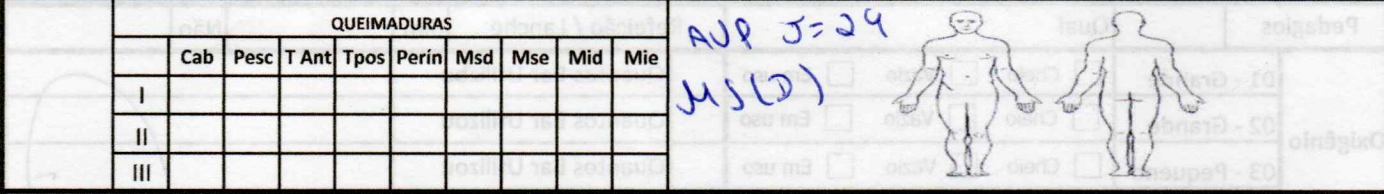 QUEIMADURAS
Cab Pesc T Ant Tpos Perín Msd Mse Mid Mie
I
II
III
AVP J=24
MS(D)